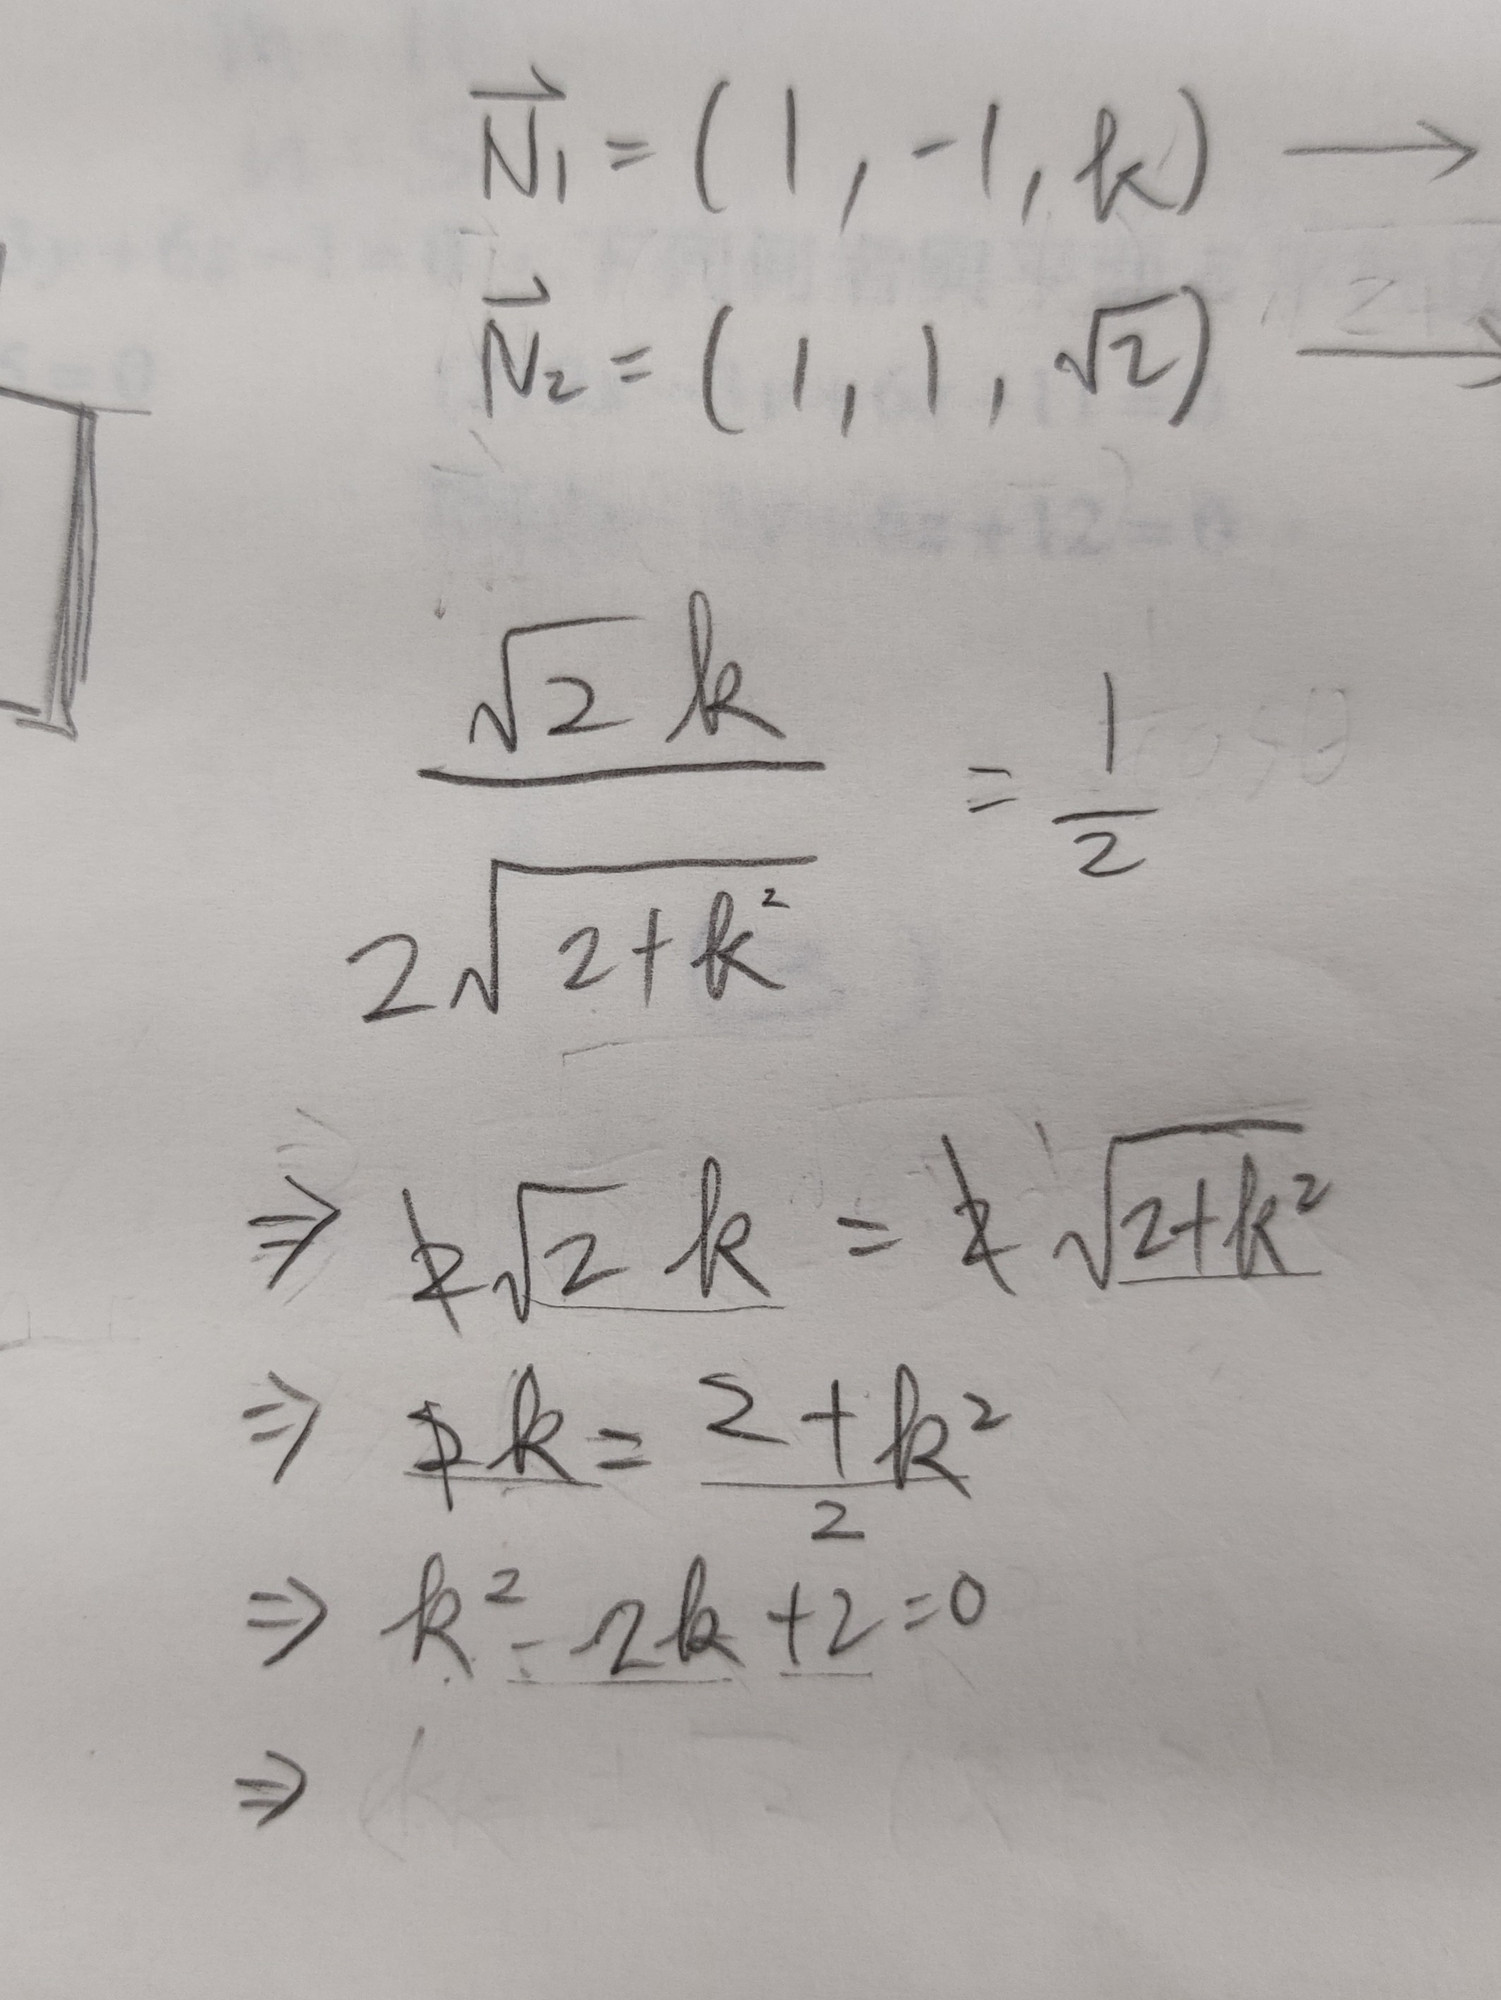 N₁ = ( 1 , -1 , k ) →
N₂ = ( 1 , 1 , √2 ) →
√2 k / 2√(2+k²) = 1/2
⇒ 2√2 k = 2 √(2+k²)
⇒ 2k = 2+k² / 2
⇒ k² - 2k + 2 = 0
⇒